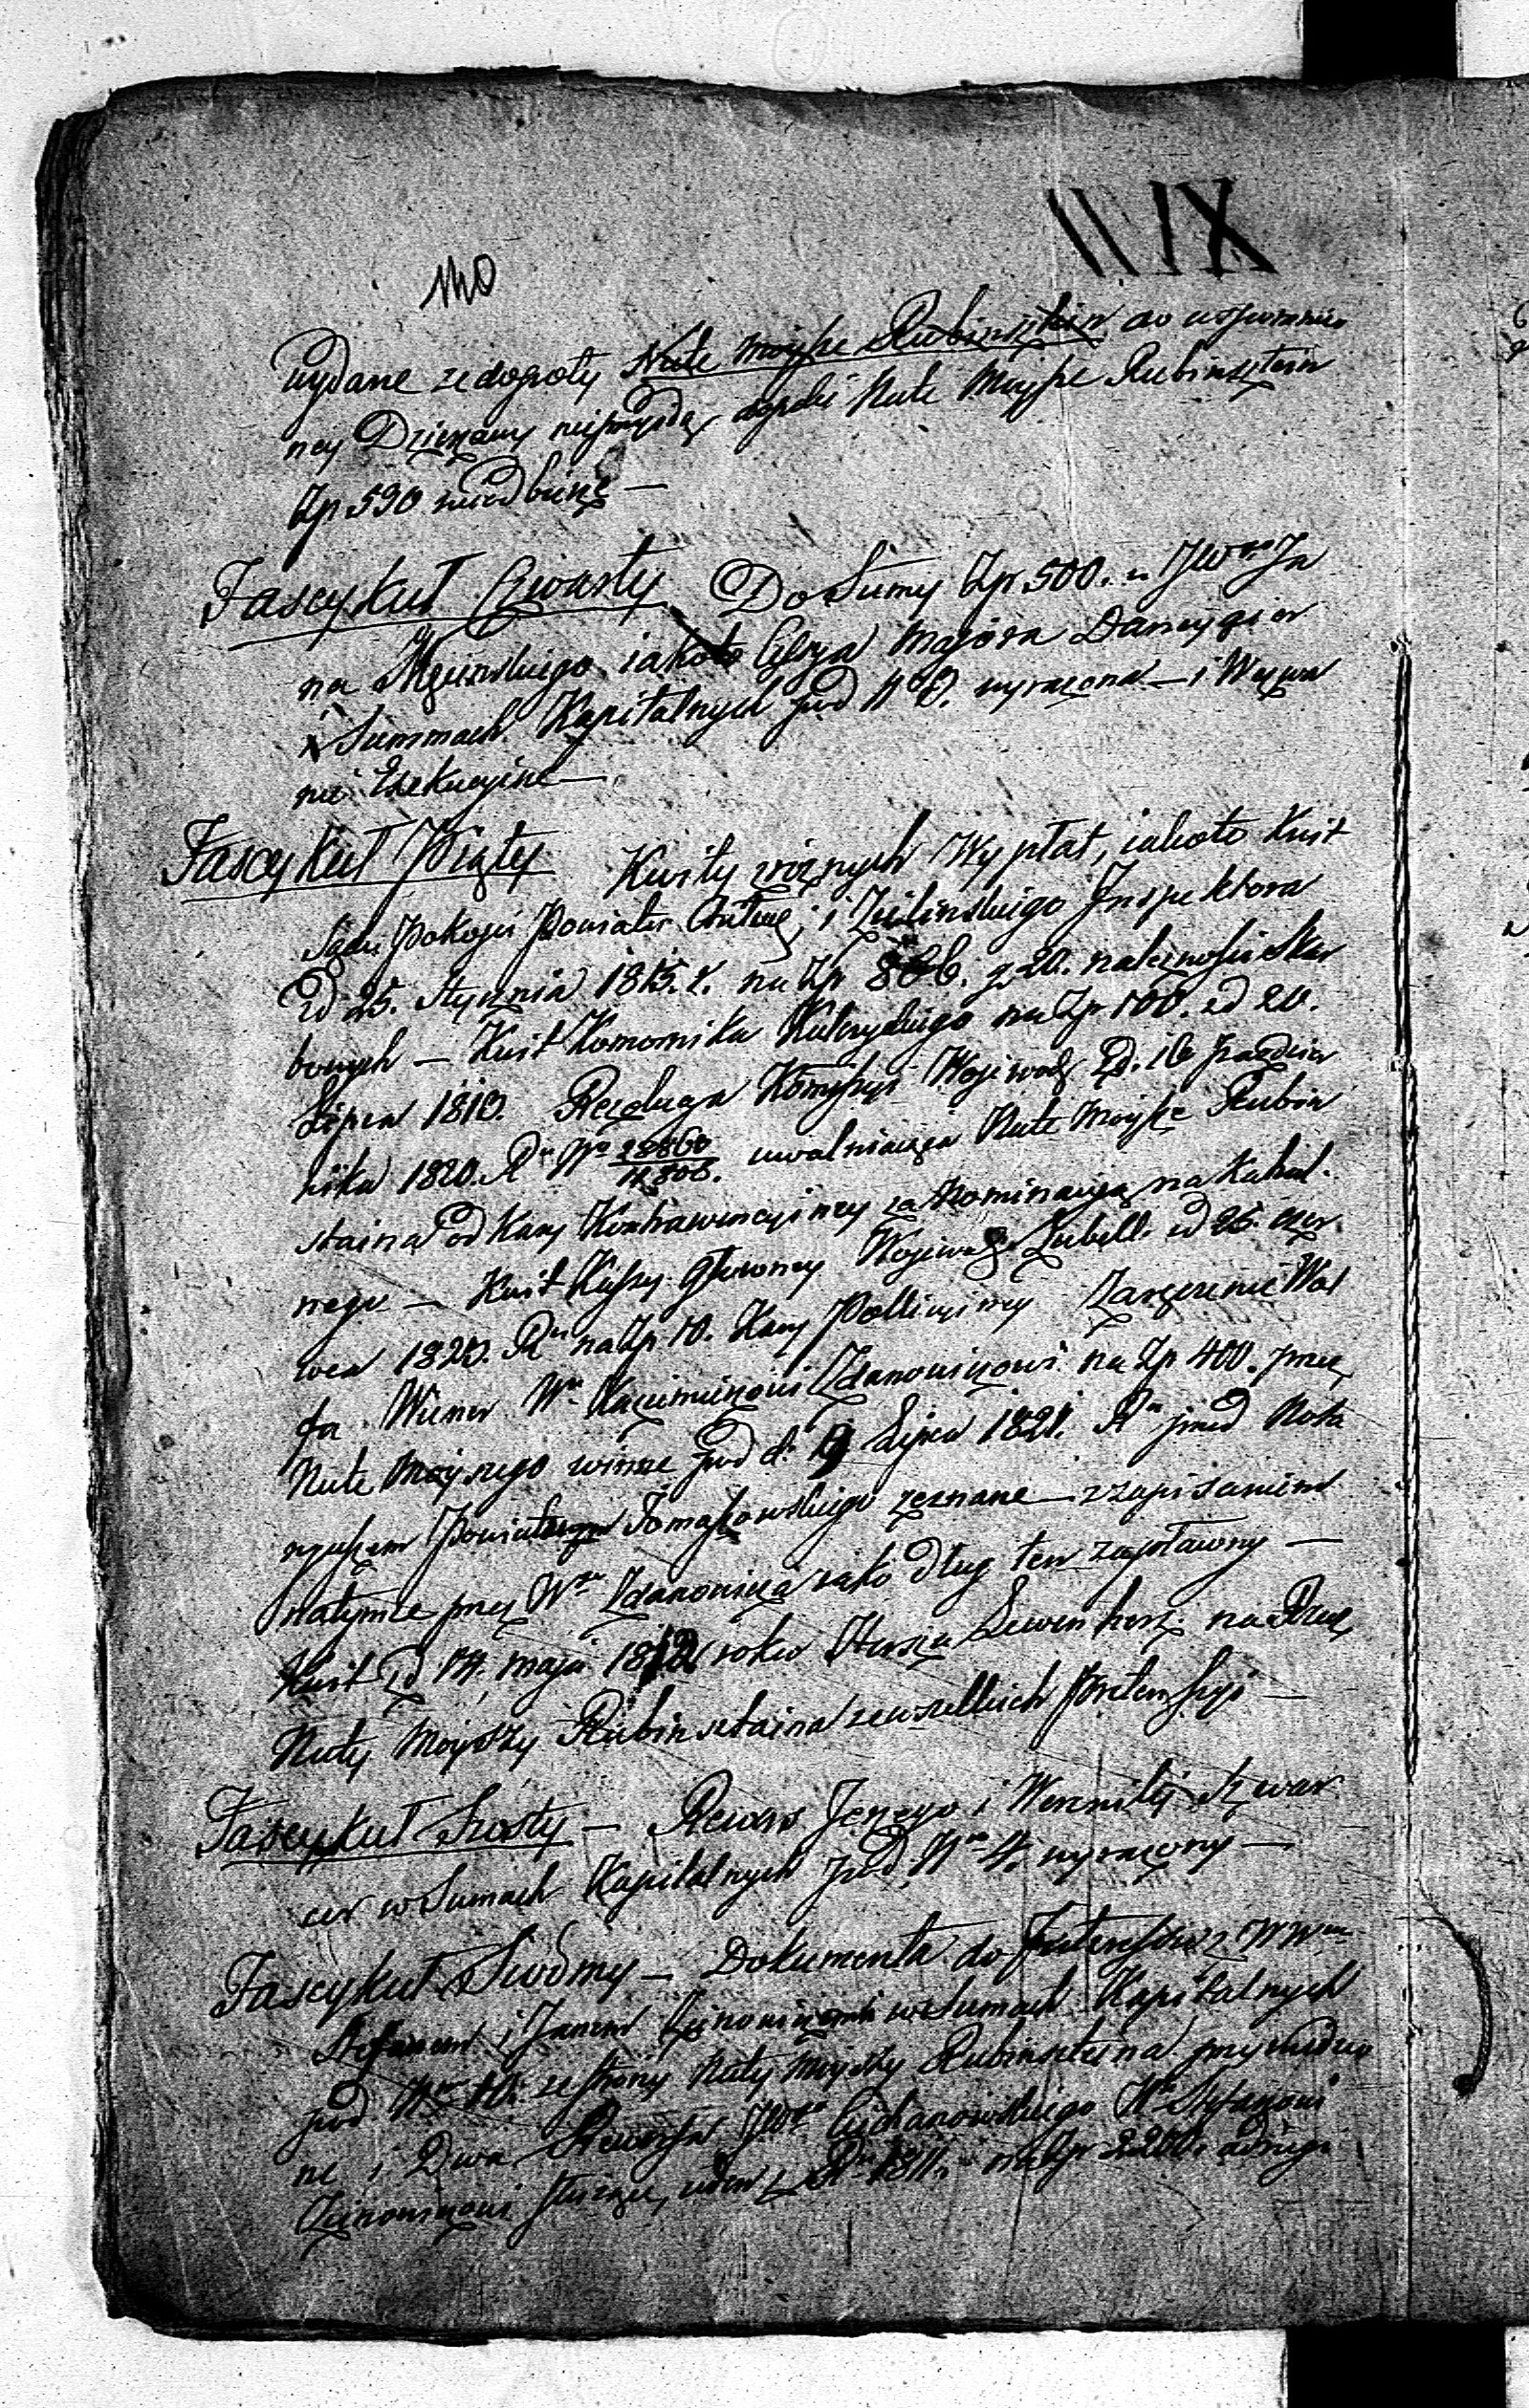 XIII
110
wydane ze dopłaty Nute Moyżе Rubinsztein do wspomnio
ney Dzierżawy nieprzyidą, dopoki Nute Moyże Rubinsztein
Zp 590 nieodbierze —
Fascykuł Czwarty Do Sumy Zp 500. u JWgo Ja
na iakoto Majora Dancygier
w Summach Kapitalnych pod N° 2. wyrażona — i Wezwa
nie Exekucyine —
Fascykuł Piąty Kwity roznych Wypłat, iakoto Kwit
Sądu Pokoju Powiatu i Zielinskiego Inspektora
Zd 25. Stycznia 1815. r. na Zp 866. g 20. należnosci Skar
bowych — Kwit Komornika na Zp 100. zd 20.
Lipca 1818. Rezoluga Kommissyi Wojewodz Zd. 16 Pazdzier
nika 1820. Ru No 28860/11806. uwalniaiąca Nute Moyże Rubin
staina od Kary Kontrawencyiney za na Kahal.
nego — Kwit Kassy Głowney Wojewodz Lubell. zd 25. czer
wca 1820. Ru na Zp 10. Kary Policyiney Zaręczenie Wol
fa Wiener Wu Kazimierzowi Zdanowiczowi na Zp 400. przez
Nute Moyżego winne pod d. 9 Lipca 1821. Ru przed Nota
ryuszem Powiatowym Tomaszowskiego zeznane — z zapisaniem
natymże przez Wgo Zdanowicza iako dług ten zapłacony —
Kwit Zd 14. maja 1812 roku Herszą Lewenherz. na Rzecz
Nuty Moyszy Rubinsztaina zewszelkich pretensyi —
Fascykuł Szosty — Rewers Jerzego i Weroniki Szwar
cer w Sumach Kapitalnych pod No 4. wyrażony —
Fascykuł Siodmy — Dokumenta do Interessow z WWmi
Stefanem i Janem w Sumach Kapitalnych
pod No 10. ze strony Nuty Moyszy Rubinszteina przywiedzio
ne i Dwa Rewersa JWgo Cichanowskiego Wu Stefanowi
służące, ieden z Ru 1811. na Zp 2200. a drugi